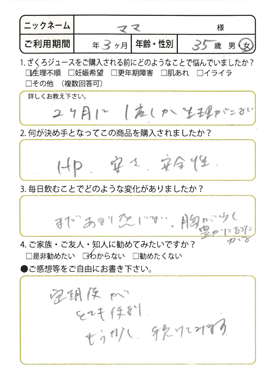 ニックネーム ママ 様
ご利用期間 年 3ヶ月 年齢・性別 35歳 男・女
1.ざくろジュースをご購入される前にどのようなことで悩んでいましたか?
□生理不順 □妊娠希望 □更年期障害 □肌あれ □イライラ
□その他 (複数回答可)
詳しくお教え下さい。
2ヶ月に1度しか生理がこない
2.何が決め手となってこの商品を購入されましたか?
HP、安さ、安全性。
3.毎日飲むことでどのような変化がありましたか?
まだあまり感じない。胸が少し
豊かになった
4.ご家族・ご友人・知人に勧めてみたいですか?
□是非勧めたい □わからない □勧めたくない
●ご感想等をご自由にお書き下さい。
定期便が
とても便利。
もう少し、続けてみます